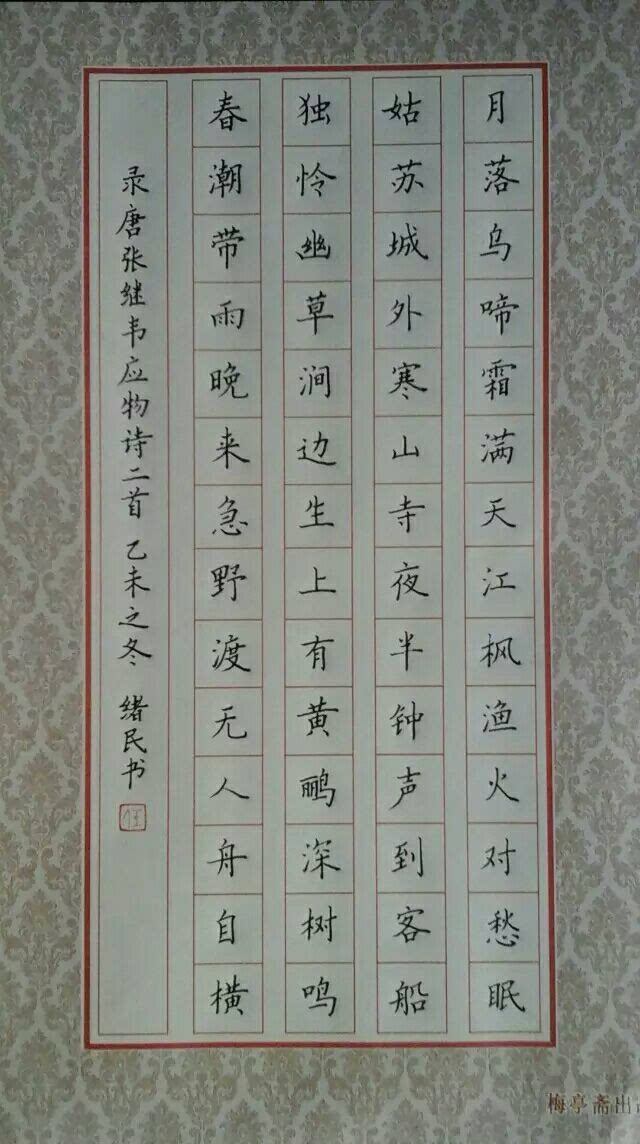 月落乌啼霜满天江枫渔火对愁眠
姑苏城外寒山寺夜半钟声到客船
独怜幽草涧边生上有黄鹂深树鸣
春潮带雨晚来急野渡无人舟自横
录唐张继韦应物诗二首 乙未之冬 绪民书
梅亭斋出